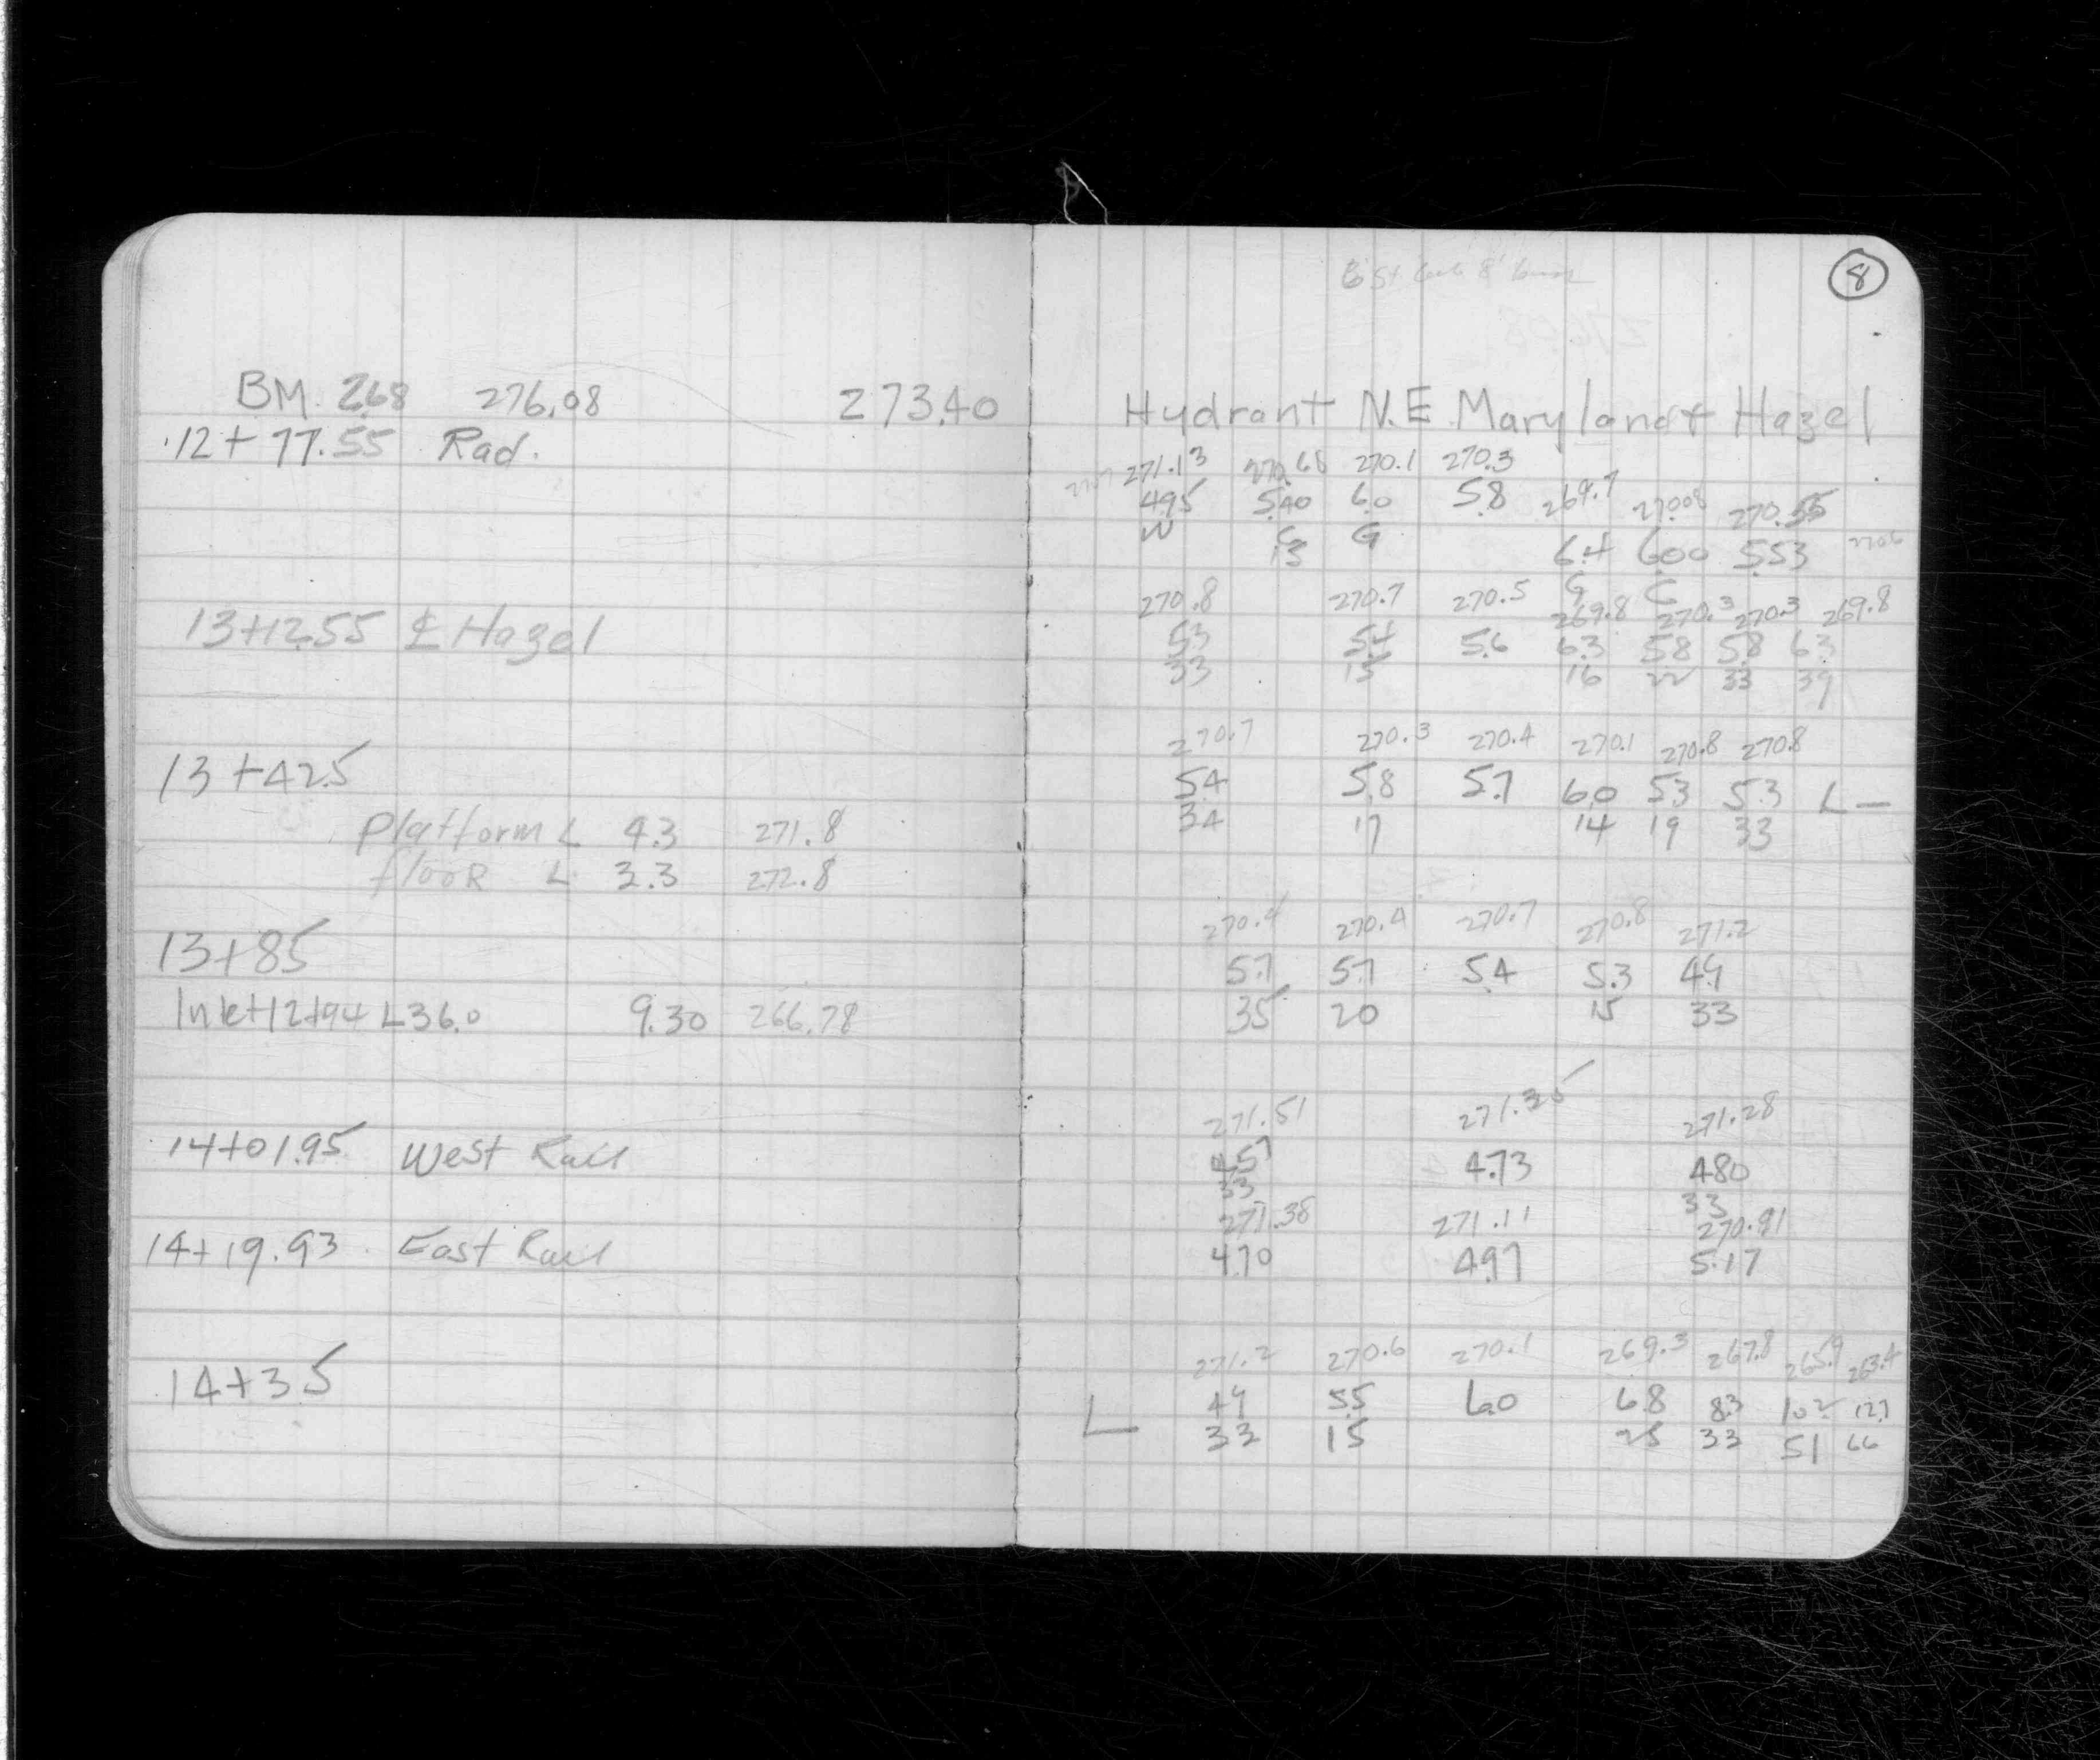 8
BM. 2.68 276.08 273.40
12+77.55 Rad.
13+12.55 ℄ Hazel
13+42.5
Platform L 4.3 271.8
flooR L 3.3 272.8
13+85
Inlet 12+94 L36.0 9.30 266.78
14+01.95 West Rail
14+19.93 East Rail
14+35
Hydrant N.E. Maryland & Hazel
271.13 270.68 270.1 270.3
4.95 5.40 6.0 5.8 269.7 270.08 270.55
W G G
13 6.4 6.00 5.53 270.6
G G
270.8 270.7 270.5 269.8 270.3 270.3 269.8
5.3 5.4 5.6 6.3 5.8 5.8 6.3
33 15 16 22 33 39
270.7 270.3 270.4 270.1 270.8 270.8
5.4 5.8 5.7 6.0 5.3 5.3 L —
34 17 14 19 33
270.4 270.4 270.7 270.8 271.2
5.7 5.7 5.4 5.3 4.9
35 20 15 33
271.51 271.35 271.28
4.57 4.73 4.80
33 33
271.38 271.11 270.91
4.70 4.97 5.17
271.2 270.6 270.1 269.3 267.8 265.9 263.4
L 4.9 5.5 6.0 6.8 8.3 10.2 12.7
33 15 25 33 51 66